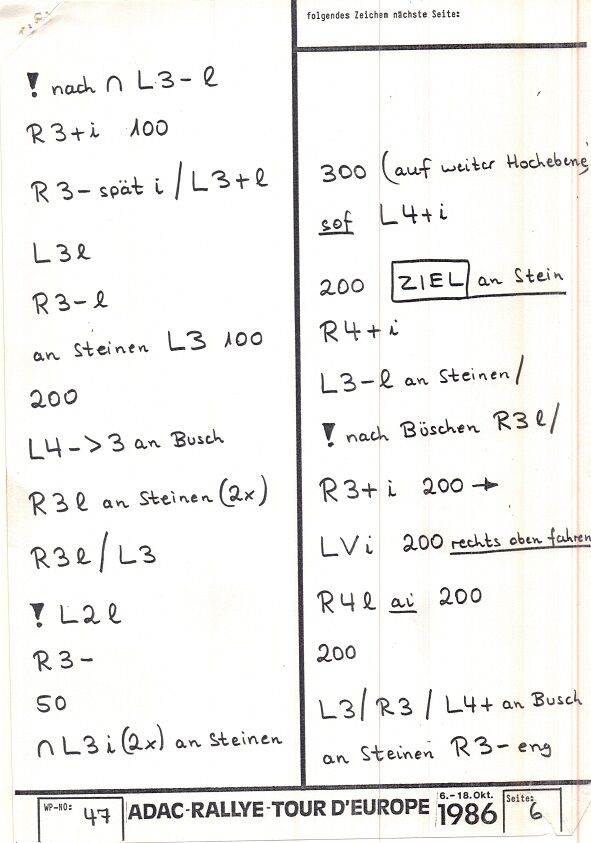 ! nach ∩ L3- l
R3+i 100
R3- spät i / L3+l
L3l
R3-l
an Steinen L3 100
200
L4->3 an Busch
R3l an Steinen (2x)
R3l / L3
! L2l
R3-
50
∩ L3 i (2x) an Steinen
folgendes Zeichem nächste Seite:
300 (auf weiter Hochebene)
sof L4+i
200 ZIEL an Stein
R4+i
L3-l an Steinen /
! nach Böschen R3l /
R3+i 200 →
LVi 200 rechts oben fahren
R4l ai 200
200
L3 / R3 / L4+ an Busch
an Steinen R3- eng
WP-NO: 47
ADAC-RALLYE-TOUR D'EUROPE
6.-18.Okt.
1986
Seite: 6